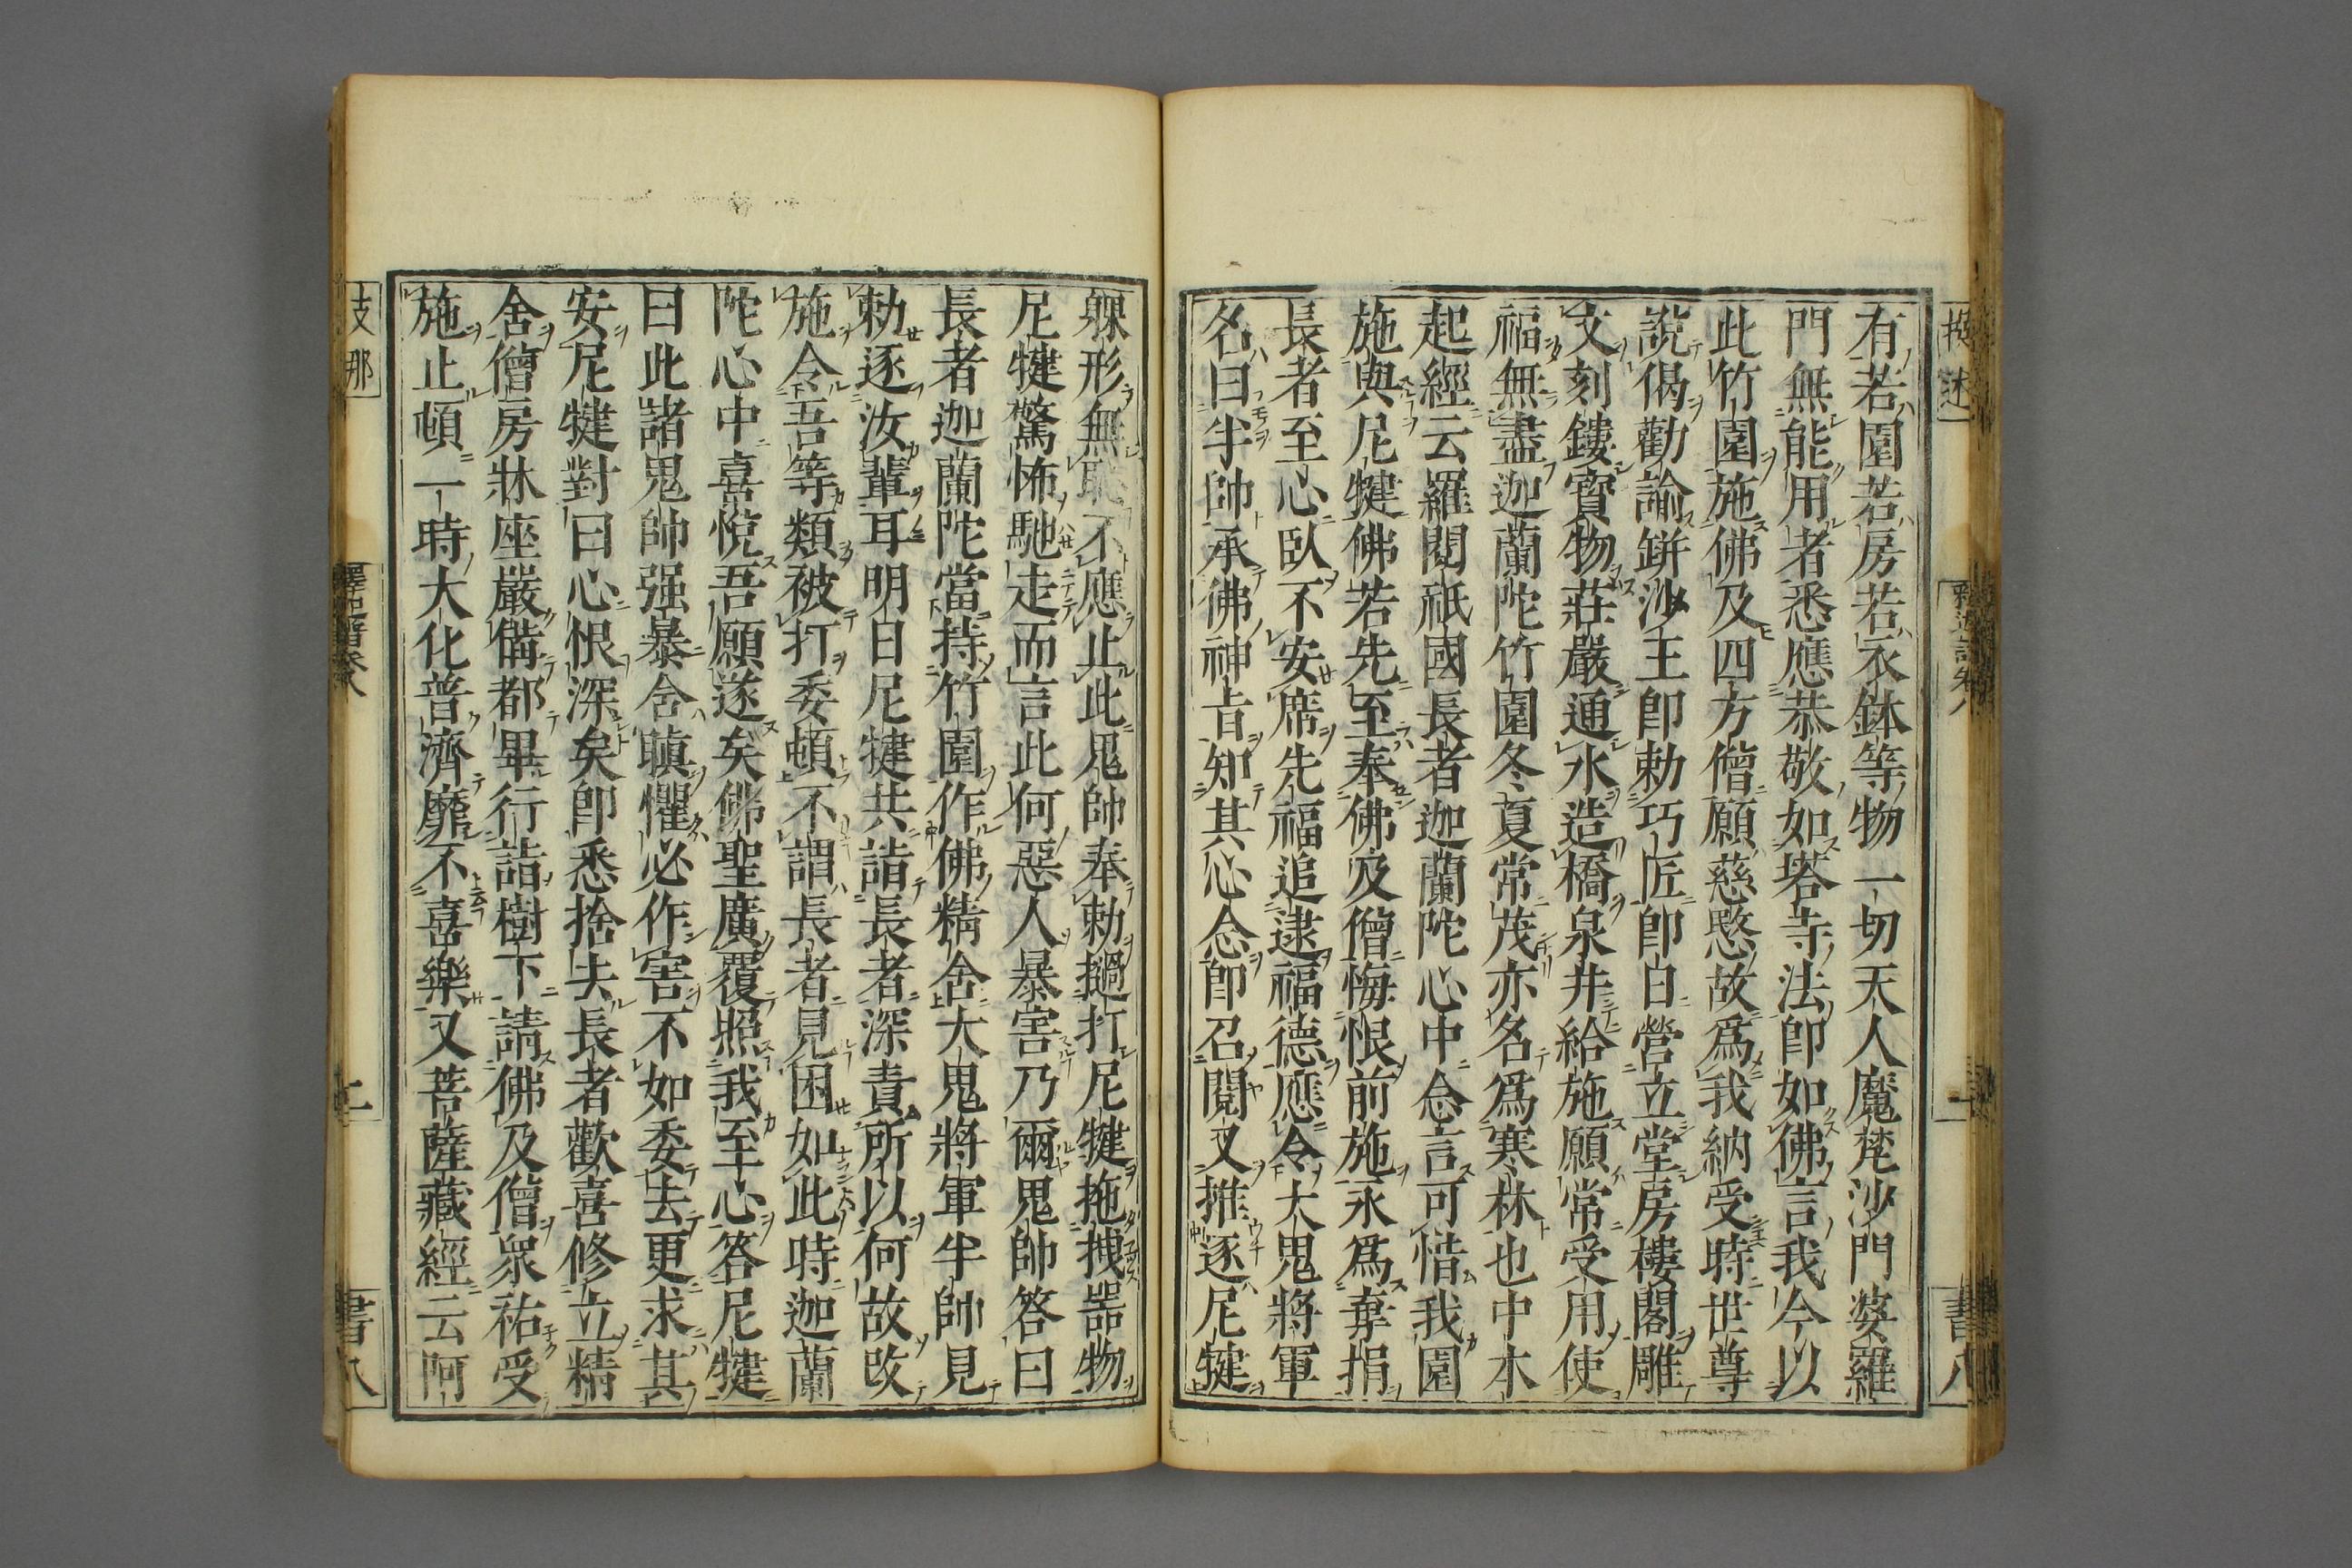 有若園若房若衣鉢等物一切天人魔梵沙門婆羅
門無能用者悉應恭敬如塔寺法即如佛言我今以
此竹園施佛及四方僧願慈愍故爲我納受時世尊
說偈勸諭缾沙王即勅巧匠即白營立堂房樓閣雕
文刻鏤寶物莊嚴通水造橋泉井給施願常受用使
福無盡迦蘭陀竹園冬夏常茂亦名爲寒林也中本
起經云羅閱祇國長者迦蘭陀心中念言可惜我園
施與尼犍佛若先至奉佛及僧悔恨前施永爲棄捐
長者至心臥不安席先福追逮福德應令大鬼將軍
名曰半帥承佛神旨知其心念即召閱叉推逐尼犍
躶形無恥不應止此鬼帥奉勅撾打尼犍拖拽噐物
尼犍驚怖馳走而言此何惡人暴害乃爾鬼帥答曰
長者迦蘭陀當持竹園作佛精舍大鬼將軍半帥見
勅逐汝輩耳明日尼犍共詣長者深責所以何故改
施令吾等類被打委頓不謂長者見困如此時迦蘭
陀心中喜悅吾願遂矣佛聖廣覆照我至心答尼犍
曰此諸鬼帥强暴含瞋懼必作害不如委去更求其
安尼犍對曰心恨深矣即悉捨去長者歡喜修立精
舍僧房牀座嚴備都畢行詣樹下請佛及僧衆祐受
施止頓一時大化普濟靡不喜樂又菩薩藏經云阿
支那
書八